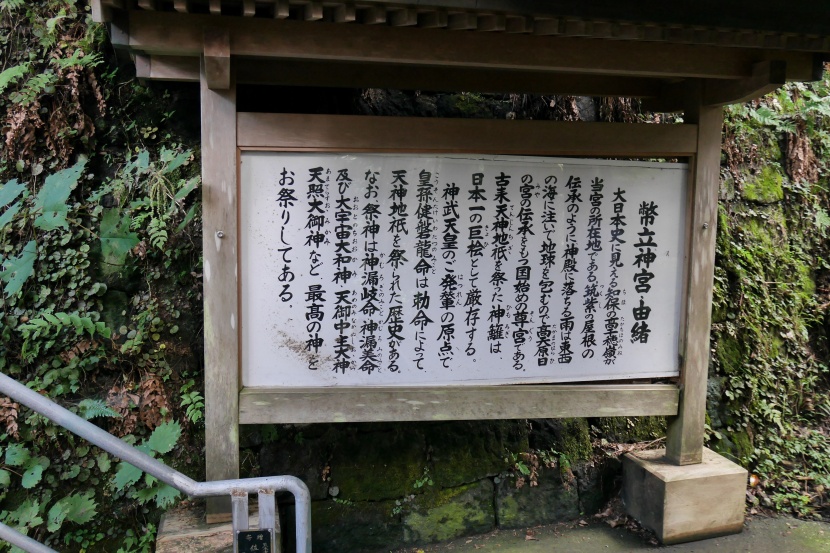 幣立神宮・由緒
大日本史に見える知保の高千穂嶺が
当宮の所在地である。筑紫の屋根の
伝承のように神殿に落ちる雨は東西
の海に注いで地球を包むので高天原日
の宮の伝承をもつ国始めの尊宮である。
古来天神地祇を祭った神籬は
日本一の巨桧として厳存する。
神武天皇のご発輦の原点で
皇孫健磐龍命は勅命によって
天神地祇を祭られた歴史がある。
なお祭神は神漏岐命 神漏美命
及び大宇宙大和神 天御中主大神
天照大御神など 最高の神を
お祭りしてある。